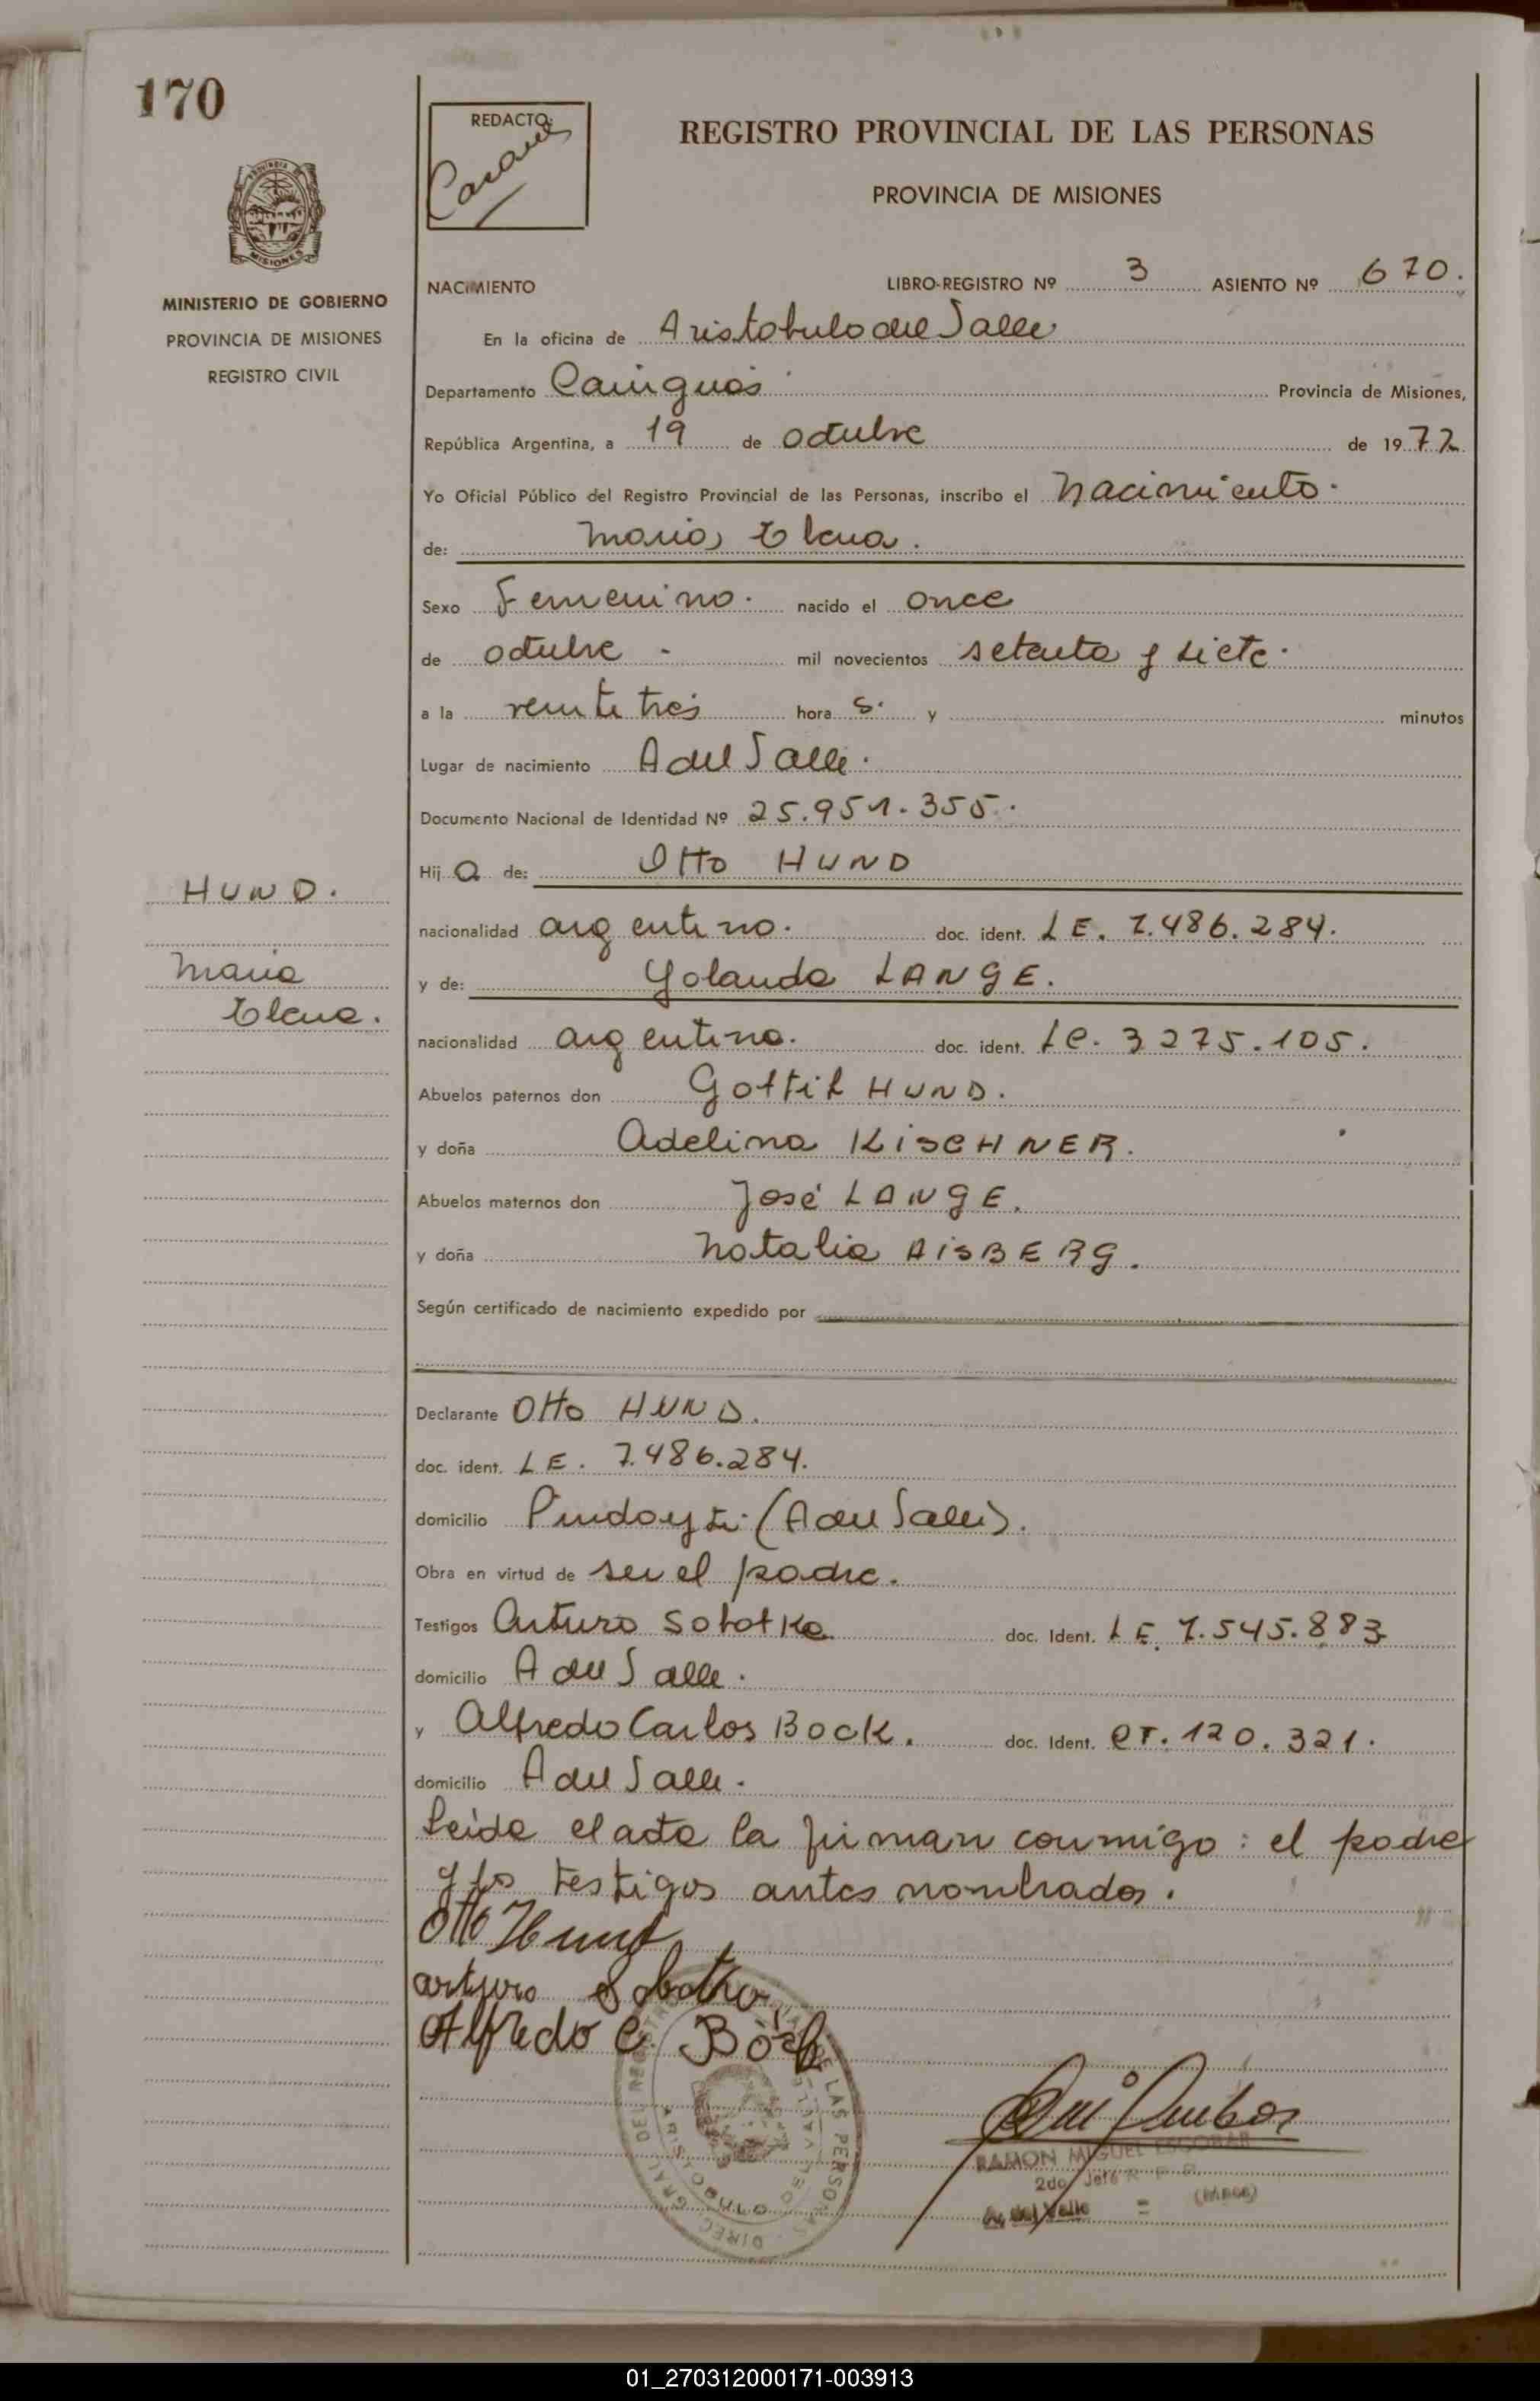 170
REDACTO:
REGISTRO PROVINCIAL DE LAS PERSONAS
PROVINCIA DE MISIONES
MISIONES
MINISTERIO DE GOBIERNO
PROVINCIA DE MISIONES
REGISTRO CIVIL
NACIMIENTO LIBRO-REGISTRO Nº 3 ASIENTO Nº 670.
En la oficina de Aristobulo del Valle
Departamento Cainguas Provincia de Misiones,
República Argentina, a 19 de octubre de 1977.
Yo Oficial Público del Registro Provincial de las Personas, inscribo el nacimiento.
de: Maria Elena.
Sexo Femenino. nacido el once
de octubre - mil novecientos setenta y siete.
a la veinte tres hora s. y minutos
Lugar de nacimiento A del Valle.
Documento Nacional de Identidad Nº 25.951.355.
Hij a de: Otto HUND
nacionalidad argentino. doc. ident. LE. 7.486.284.
y de: Yolanda LANGE.
nacionalidad argentina. doc. ident. LC. 3275.105.
Abuelos paternos don Gottil HUND.
y doña Adelina KiSCHNER.
Abuelos maternos don José LANGE.
y doña Natalia AiSBERG.
HUND.
Maria
Elena.
Según certificado de nacimiento expedido por
Declarante Otto HUND.
doc. ident. LE. 7.486.284.
domicilio Pindoyti (A del Valle).
Obra en virtud de ser el padre.
Testigos Arturo Sobotka doc. Ident. LE. 7.545.883
domicilio A del Valle.
y Alfredo Carlos Bock. doc. Ident. CI. 120.321.
domicilio A del Valle.
Leida el acta la firman conmigo: el padre
y los testigos antes nombrados.
Otto Hund
arturo Sobotka
Alfredo C. Böck
DIREC. GRAL DEL REGISTRO PROVINCIAL DE LAS PERSONAS
ARISTOBULO DEL VALLE
RAMON MIGUEL ESCOBAR
2do Jefe R P P
A. del Valle = (Mnes)
01_270312000171-003913